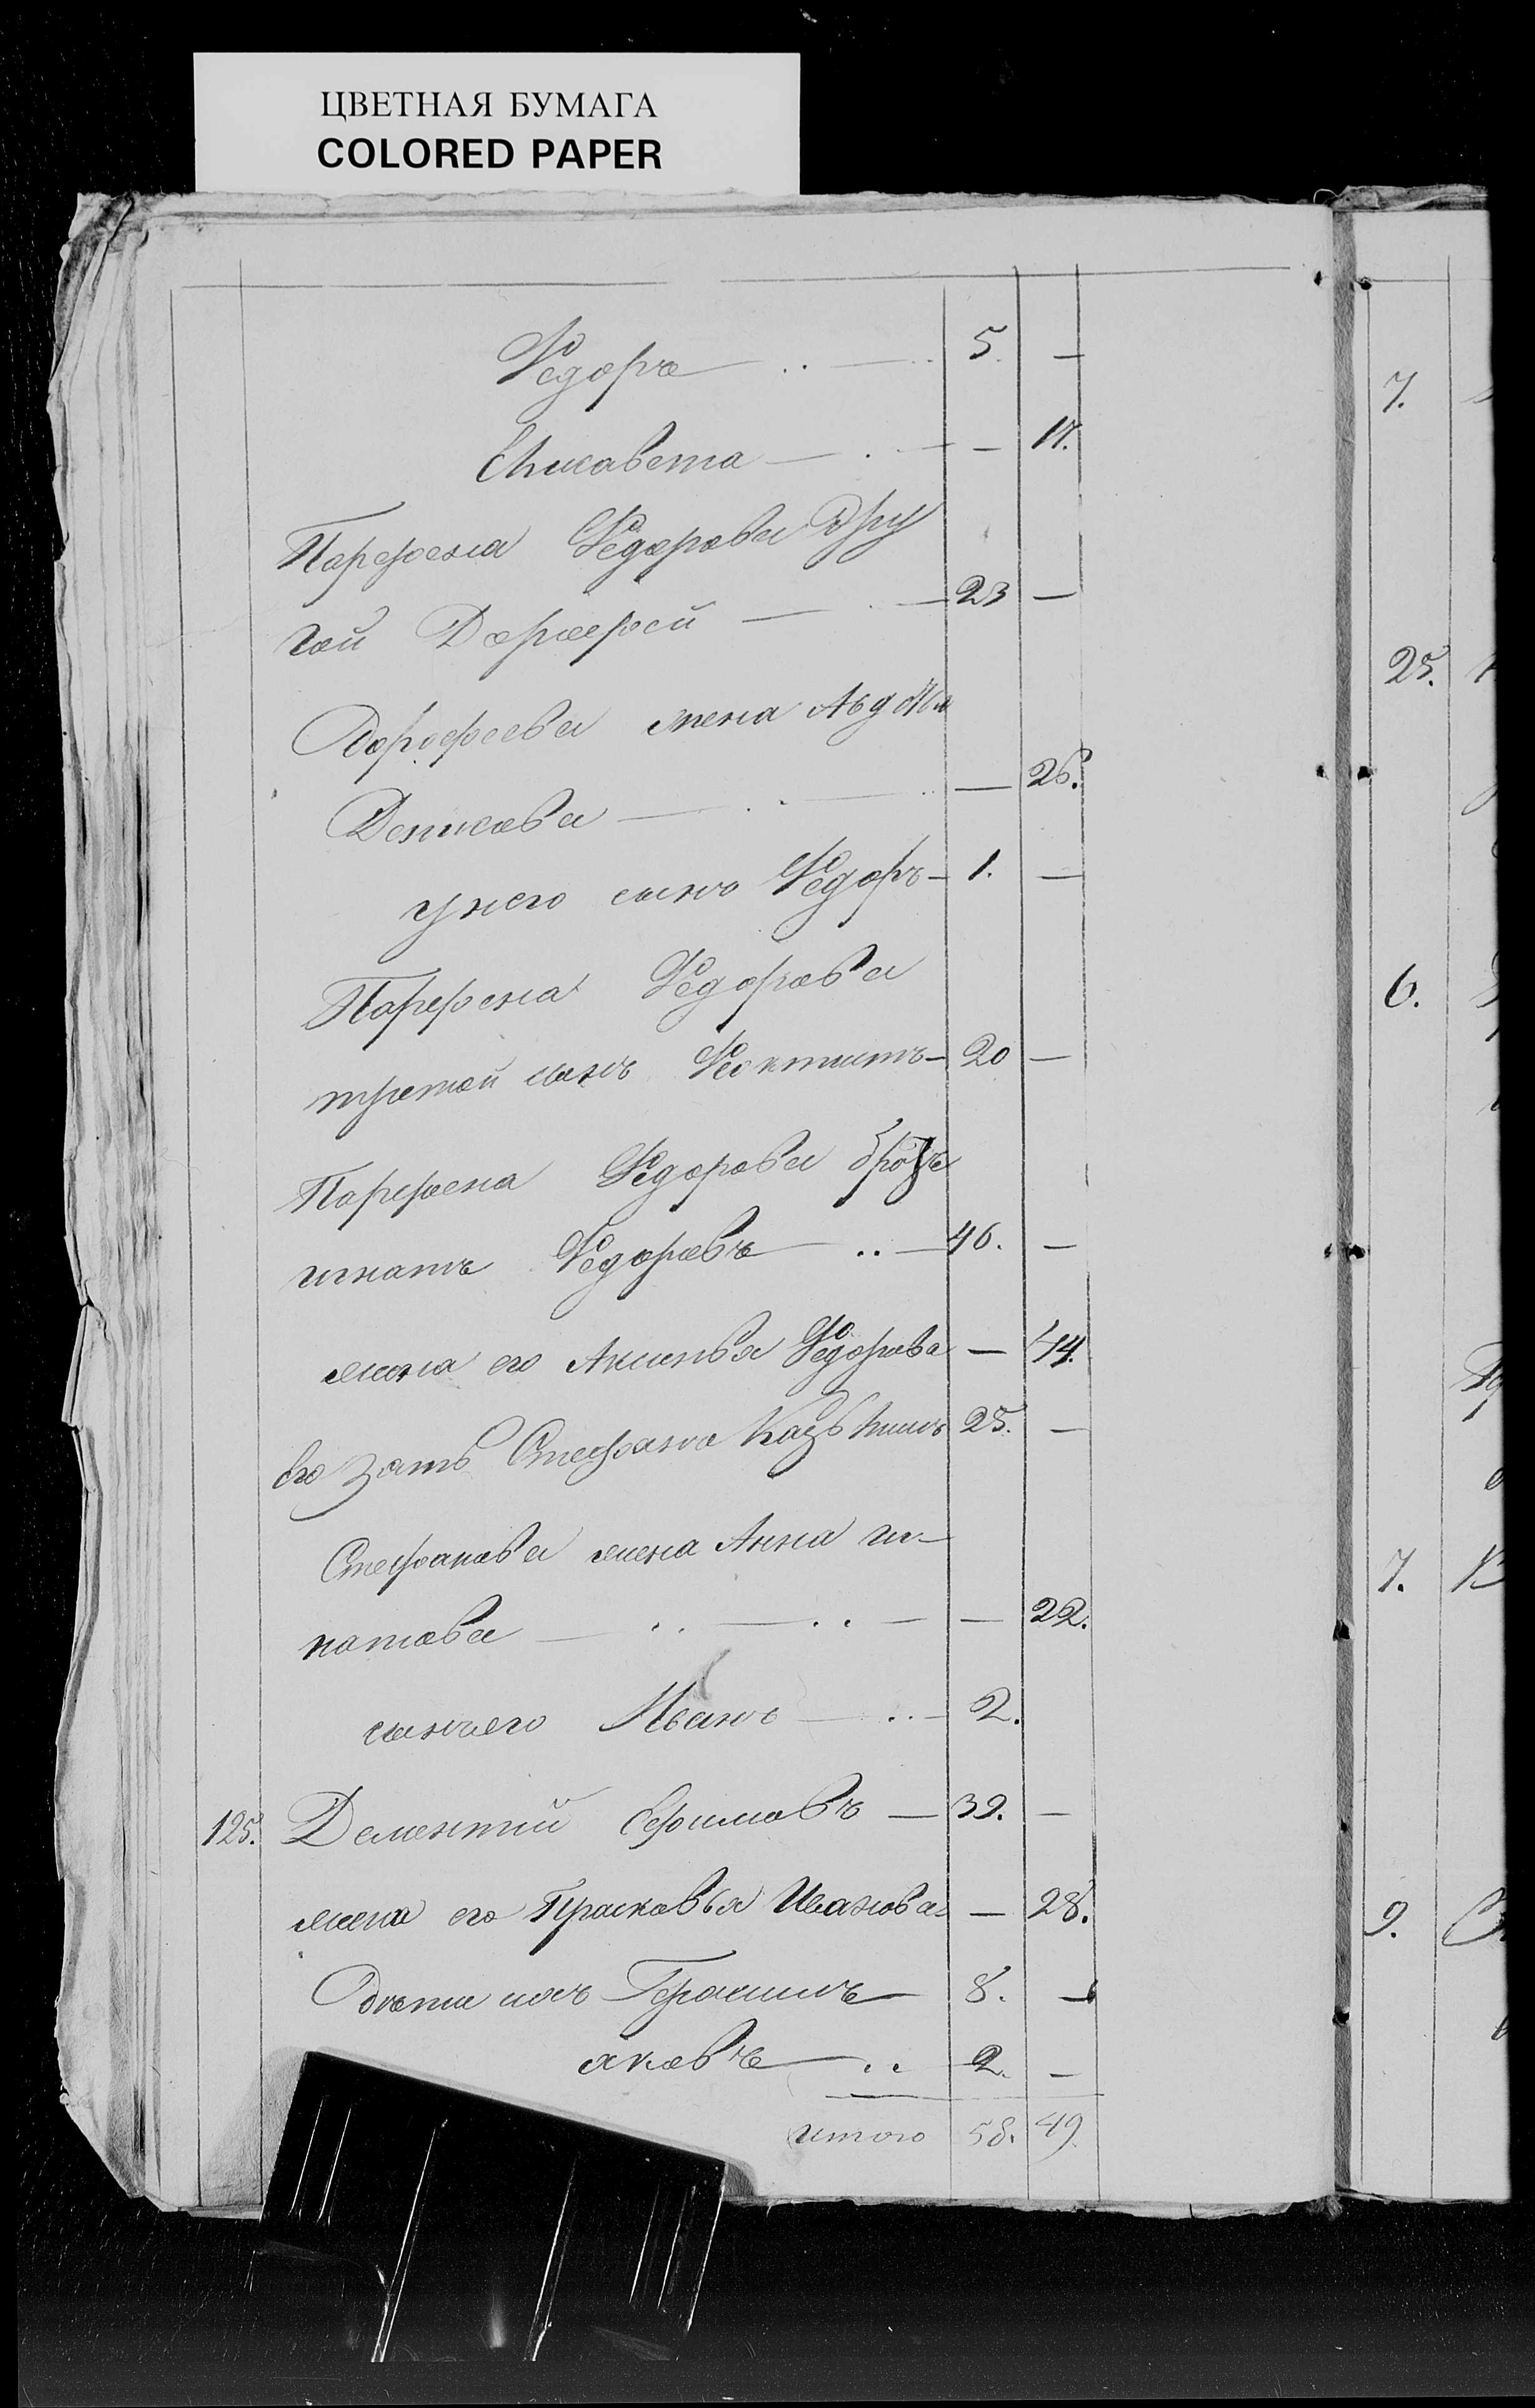 ЦВЕТНАЯ БУМАГА
COLORED PAPER
Федоръ — .. — 5. —
Елисавета — . — — 17.
Парфена Федорова дру
гой Дорофей — . — 23 —
Дорофеева жена Авдотья
Денисова — . . — — 26.
у него сынъ Федоръ — 1. —
Парфена Федорова
третой сынъ Феоктистъ — 20 —
Парфена Федорова братъ
игнатъ Федоровъ — .. — 46. —
жена его Аксинья Федорова — 44.
Его зять Стефанъ 25. —
Стефанова жена Анна иг-
натова — .. — .. — — 22.
сынъ его Иванъ — .. — 2.
125. Дементий Ефимовъ — 39. —
жена его Прасковья Иванова — 28.
дети ихъ Герасимъ — 8. —
яковъ — .. 2. —
итого 58. 49.
7.
25.
6.
7.
9.